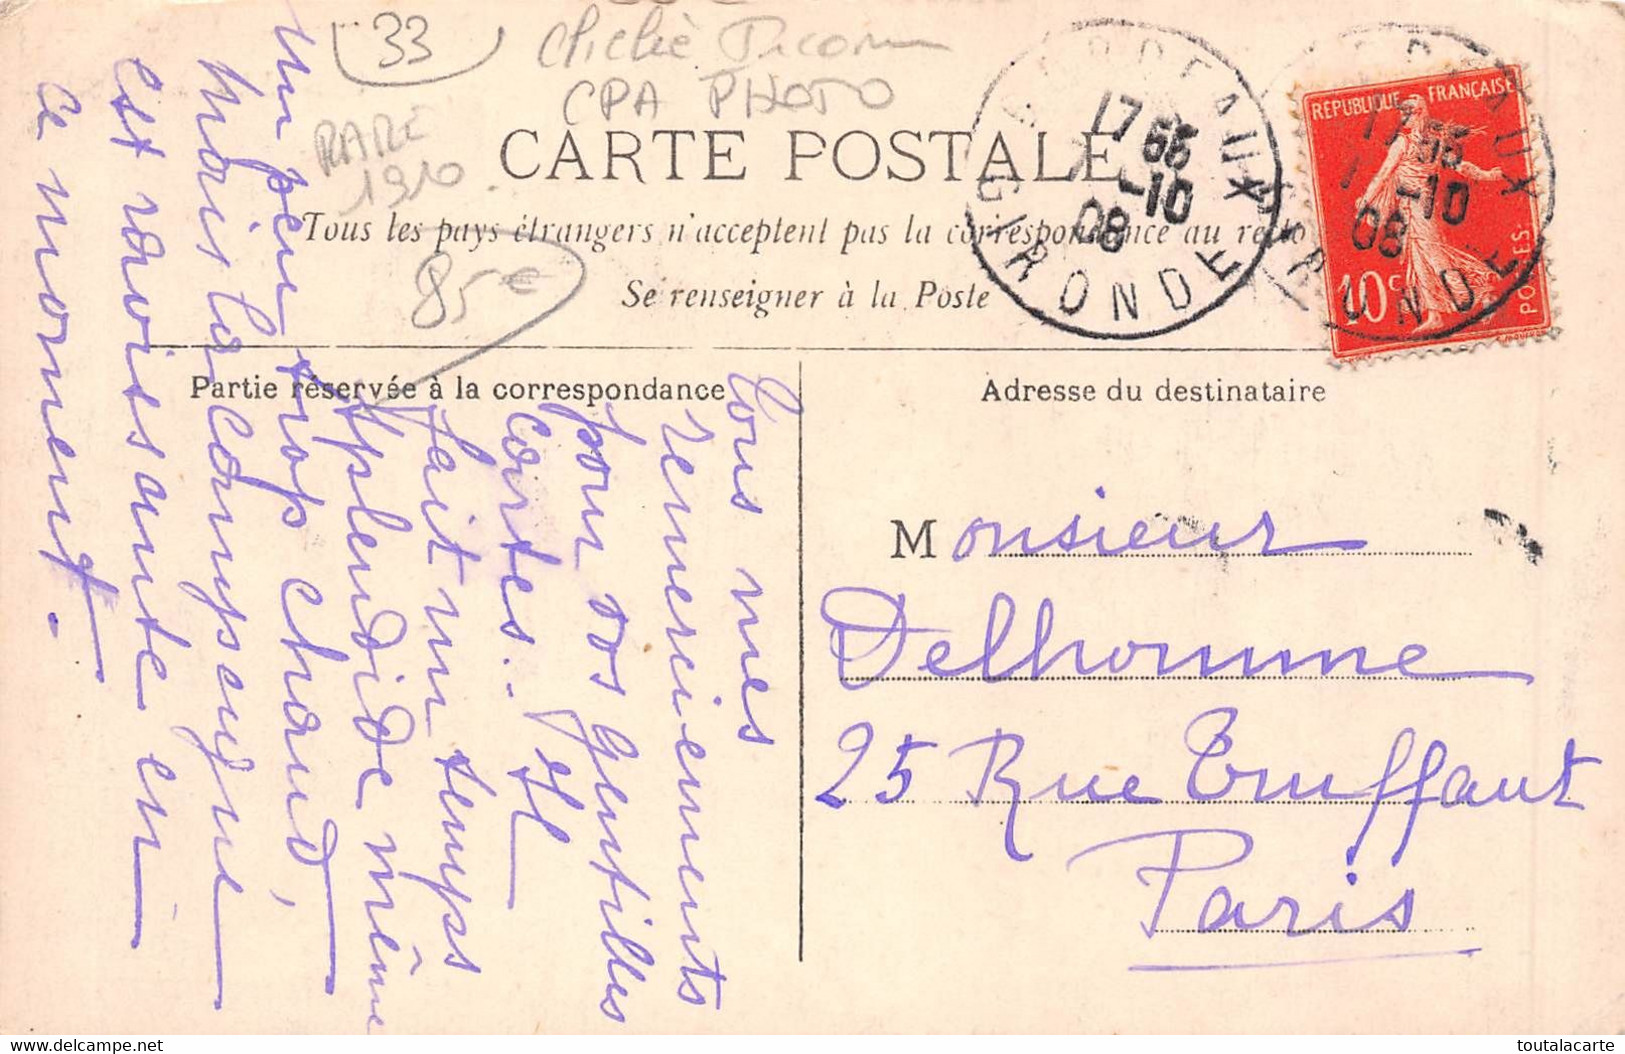 33
Cliché
CPA PHOTO
RARE
1910.
85€
CARTE POSTALE
Tous les pays étrangers n'acceptent pas la correspondance au recto
Se renseigner à la Poste
BORDEAUX
GIRONDE
17 55
7 -10
08
RÉPUBLIQUE FRANÇAISE
10c
POSTES
Partie réservée à la correspondance
Adresse du destinataire
Tous mes
remerciements
pour vos gentilles
Cartes. Il
fait un temps
splendide même
un peu trop chaud,
mais la campagne
est ravissante en
ce moment.
Monsieur
Delhomme
25 Rue Truffaut
Paris
delcampe.net
toutalacarte